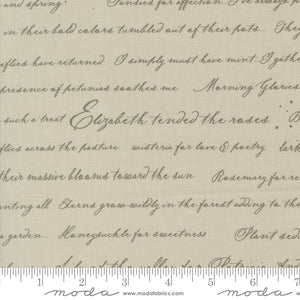 and spring. Pansies for affection. I've always p
in their bold colors tumbled out of their pots... They
eflies have returned I simply must have mint. I gathe
presence of petunias soothes me Morning Glories
such a treat Elizabeth tended the roses B
flies across the pasture wisteria for love & poetry lark
their massive blooms toward the sun Rosemary for re
nting all. Ferns grow wildly in the forest adding to the
a garden... Honeysuckle for sweetness Plant seed
1 2 3 4 5 6 7
moda www.modafabrics.com moda